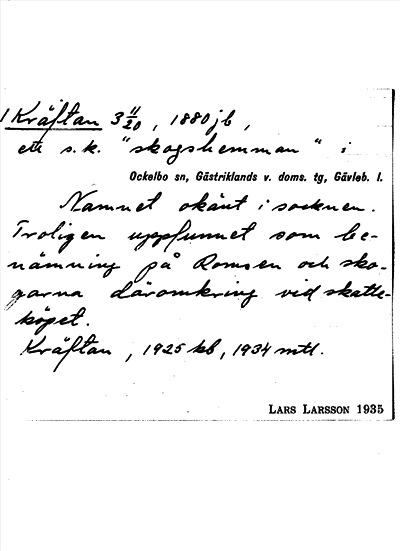 1 Kräftan 3 11/20, 1880 jb,
ett s.k. "skogshemman" i
Ockelbo sn, Gästriklands v. doms. tg, Gävleb. l.
Namnet okänt i socknen.
Troligen uppfunnet som be-
nämning på Romsen och sko-
garna däromkring vid skatte-
köpet.
Kräftan, 1925 kb, 1934 mtl.
LARS LARSSON 1935